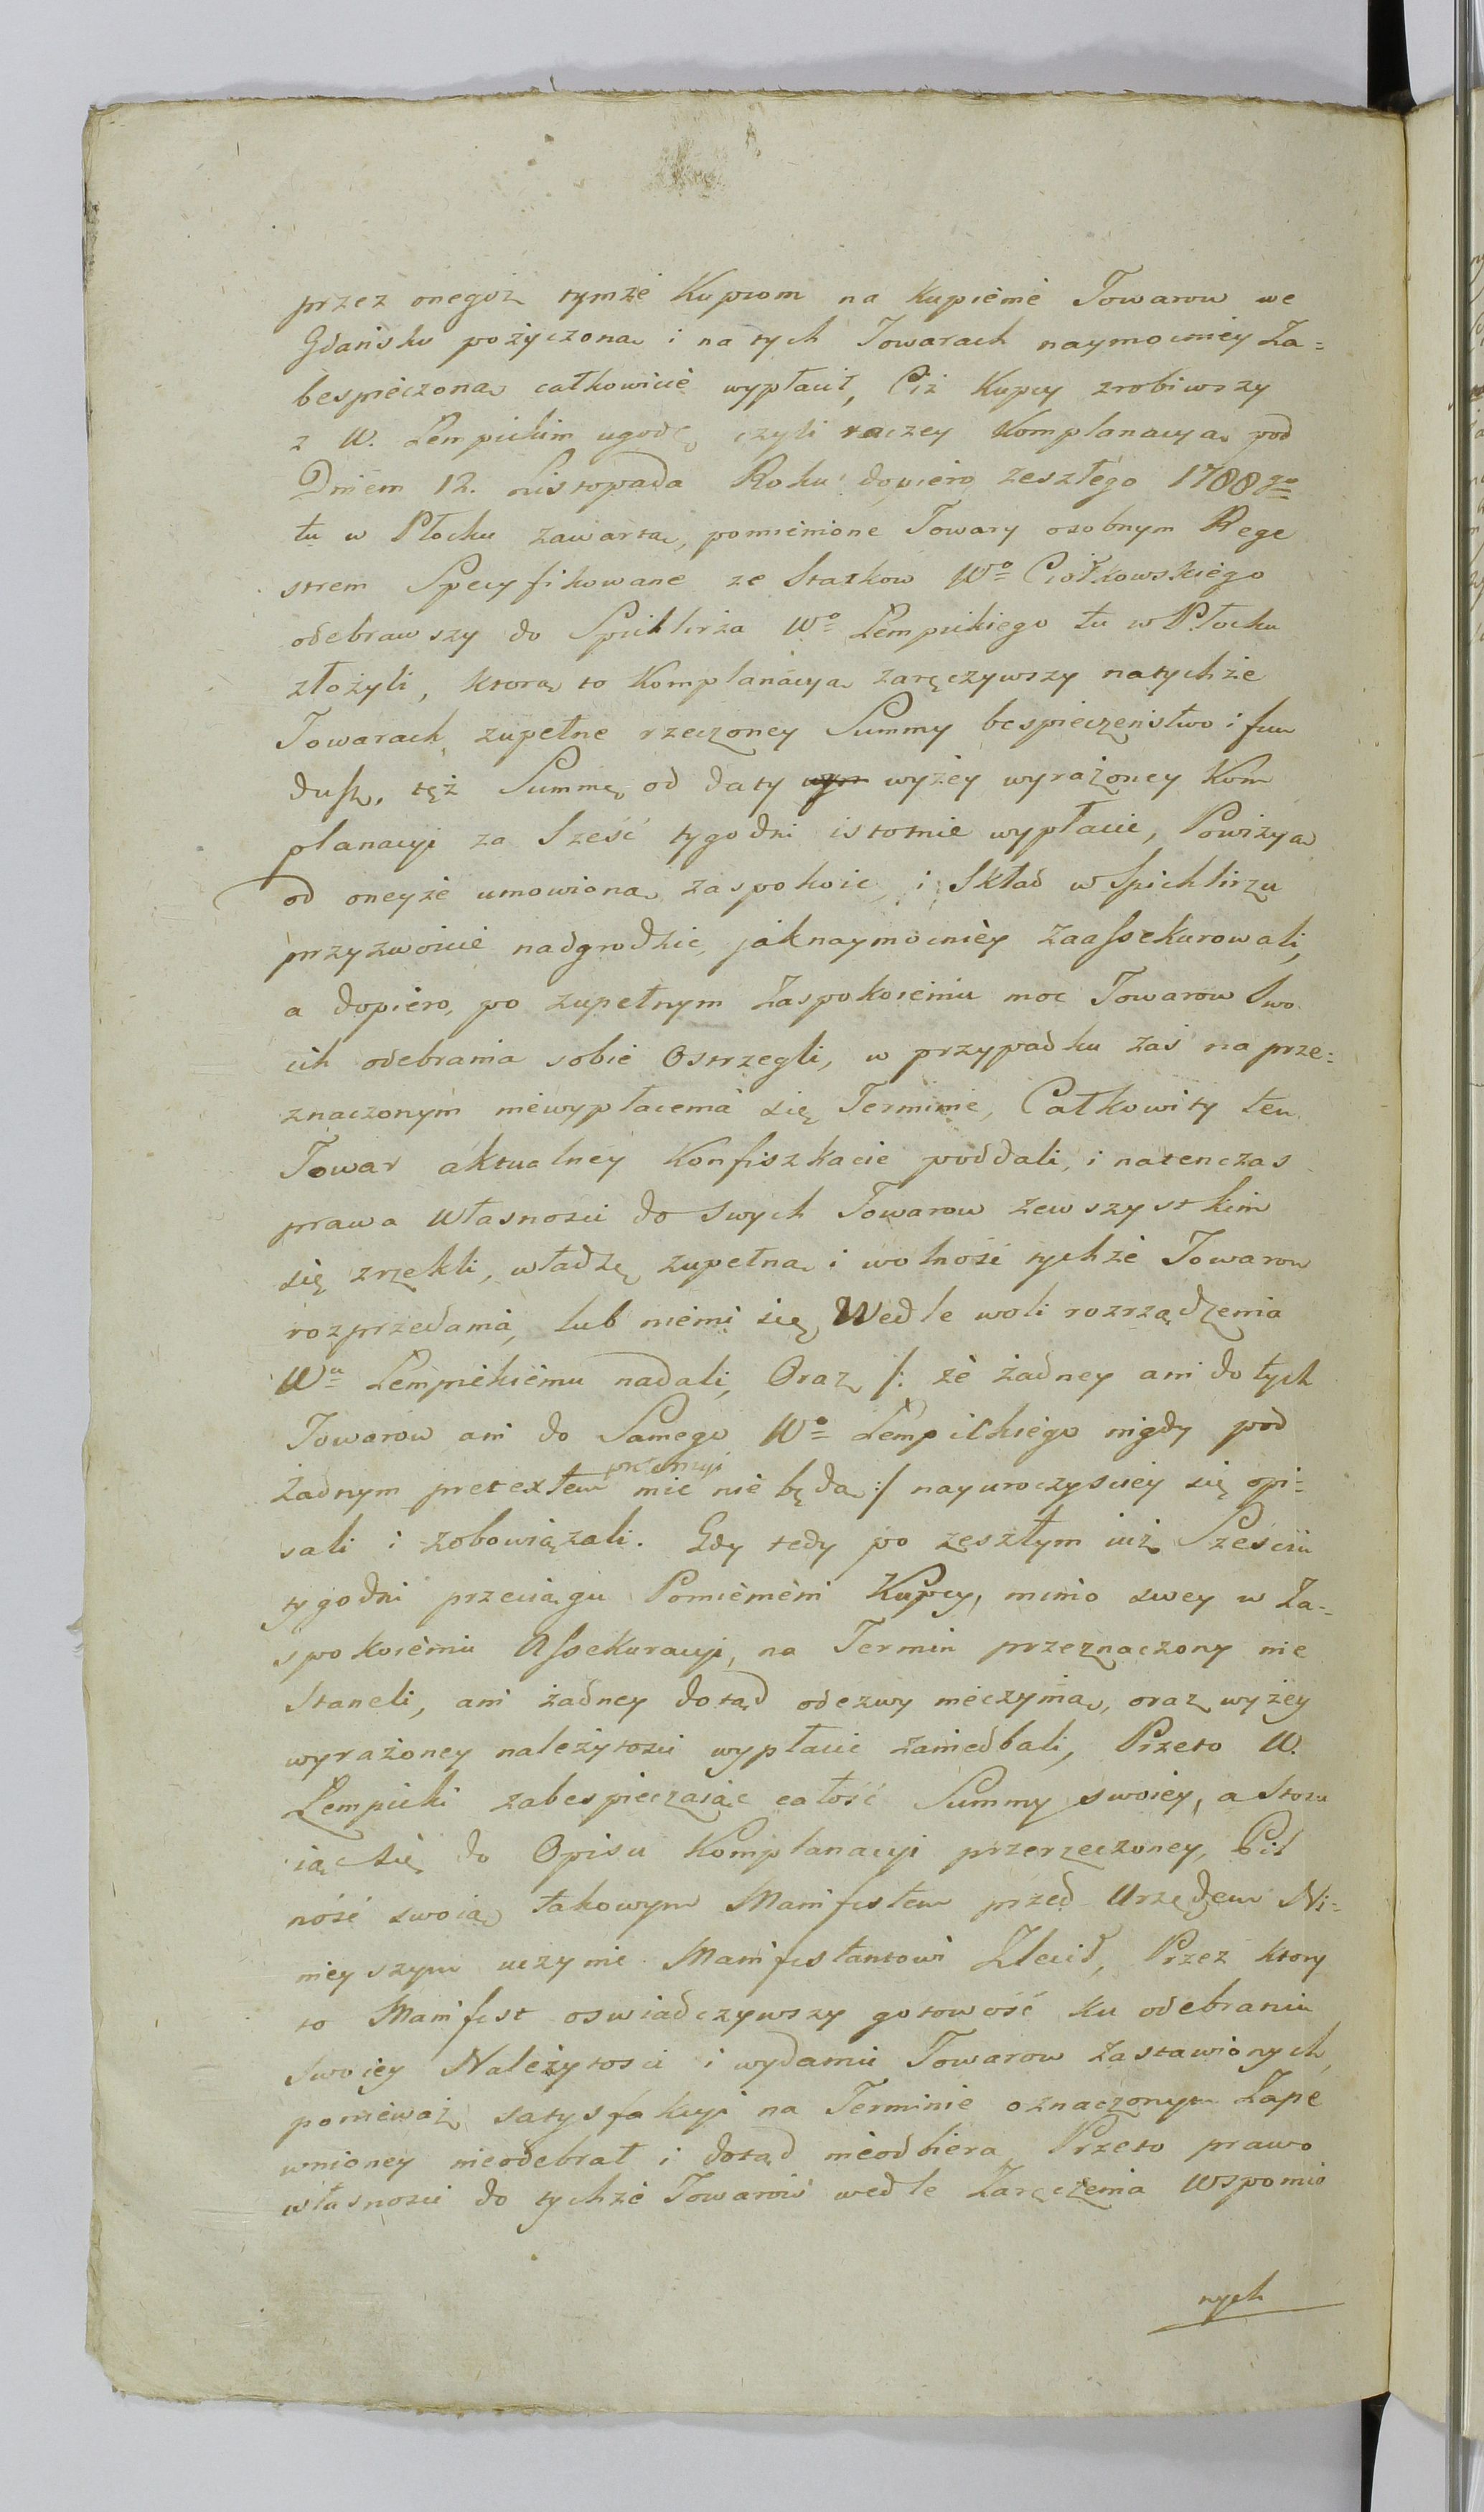 przez onegoż tymże Kupcom na kupienie Towarow we
Gdańsku pożyczoną i na tych Towarach naymocniey Za=
bespieczoną całkowicie wypłacił, Ciż Kupcy zrobiwszy
z W. Lempickim ugodę czyli raczey Komplanacyą pod
Dniem 12. Listopada Roku dopiero zeszłego 1788go
tu w Płocku zawartą, pomienione Towary osobnym Rege
strem Specyfikowane ze Statkow Wo Ciołkowskiego
odebrawszy do Spichlirza Wo Lempickiego tu w Płocku
złożyli, ktorą to Komplanacyą zaręczywszy na tychże
Towarach zupełne rzeczoney Summy bespieczeństwo i fun
dusz, też Summę od daty wyżey wyrażoney Kom
planacyi za Sześć tygodni istotnie wypłacic, Prowizyą
od oneyże umowioną zaspokoic i Skład w Spichlirzu
przyzwoicie nadgrodzic, jaknaymocniey zaassekurowali,
a dopiero, po zupełnym Zaspokoieniu moc Towarow Swo
ich odebrania sobie Ostrzegli, w przypadku zaś na prze=
znaczonym niewypłacenia się Terminie, Całkowity ten
Towar aktualney Konfiszkacie poddali, i natenczas
prawa Własnosci do Swych Towarow zewszystkim
się zrzekli, władzę zupełną i wolność tychże Towarow
rozprzedania, lub niemi się Wedle woli rozrządzenia
Wu Lempickiemu nadali, Oraz /: że żadney ani do tych
Towarow ani do Samego Wo Lempickiego nigdy pod
żadnym pretextem pretensyi mieć nie będą :/ nayuroczysciey się opi=
sali i zobowiązali. Gdy tedy po zeszłym iuż Sześciu
tygodni przeciągu Pomienieni Kupcy, mimo swey w Za=
spokoieniu Assekuracyi, na Termin przeznaczony nie
Staneli, ani żadney dotąd odezwy nieczynią, oraz wyżey
wyrażoney należytosci wypłacic zaniedbali, Przeto W.
Lempicki zabespieczaiąc całość Summy swoiey, a Stosu
iąc się do Opisu Komplanacyi przerzeczoney, Pil
ność swoią takowym Manifestem przed Urzędem Ni=
nieyszym uczynic Manifestantowi Zlecił, Przez ktory
to Manifest oswiadczywszy gotowość ku odebraniu
Swoiey Należytosci i wydaniu Towarow Zastawionych,
ponieważ satysfakcyi na Terminie oznaczonym Zape
wnioney nieodebrał i dotąd nieodbiera, Przeto prawo
własnosci do tychże Towarow wedle Zaręczenia Wspomio
nych